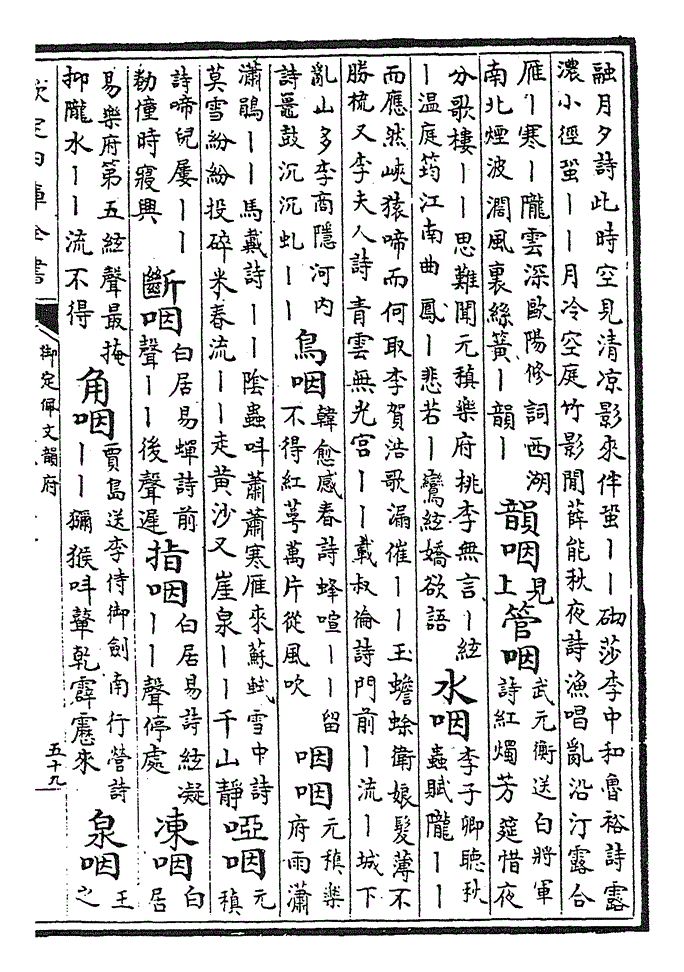 融月夕詩此時空見清凉影來伴蛩丨丨砌莎李中和魯裕詩露
濃小徑蛩丨丨月冷空庭竹影閒薛能秋夜詩漁唱亂沿汀露合
雁丨寒丨隴雲深歐陽修詞西湖
南北煙波濶風裏絲簧丨韻丨
韻咽
見
上
管咽
武元衡送白將軍
詩紅燭芳筵惜夜
分歌樓丨丨思難聞元稹樂府桃李無言丨絃
丨温庭筠江南曲鳳丨悲若丨鸞絃嬌欲語
水咽
李子卿聽秋
蟲賦隴丨丨
而應然峽猿啼而何取李賀浩歌漏催丨丨玉蟾蜍衛娘髮薄不
勝梳又李夫人詩青雲無光宫丨丨戴叔倫詩門前丨流丨城下
亂山多李商隱河内
詩鼉鼓沉沉虬丨丨
鳥咽
韓愈感春詩蜂喧丨丨留
不得紅萼萬片從風吹
咽咽
元稹樂
府雨瀟
瀟鵑丨丨馬戴詩丨丨陰蟲呌蕭蕭寒雁來蘇軾雪中詩
莫雪紛紛投碎米春流丨丨走黄沙又崖泉丨丨千山靜
啞咽
元
稹
詩啼兒屢丨丨
勅僮時寢興
斷咽
白居易蟬詩前
聲丨丨後聲遲
指咽
白居易詩絃凝
丨丨聲停處
凍咽
白
居
易樂府第五絃聲最掩
抑隴水丨丨流不得
角咽
賈島送李侍御劍南行營詩
丨丨獼猴呌鼙乾霹靂來
泉咽
王
之
欽定四庫全書
御定佩文韻府
五十九